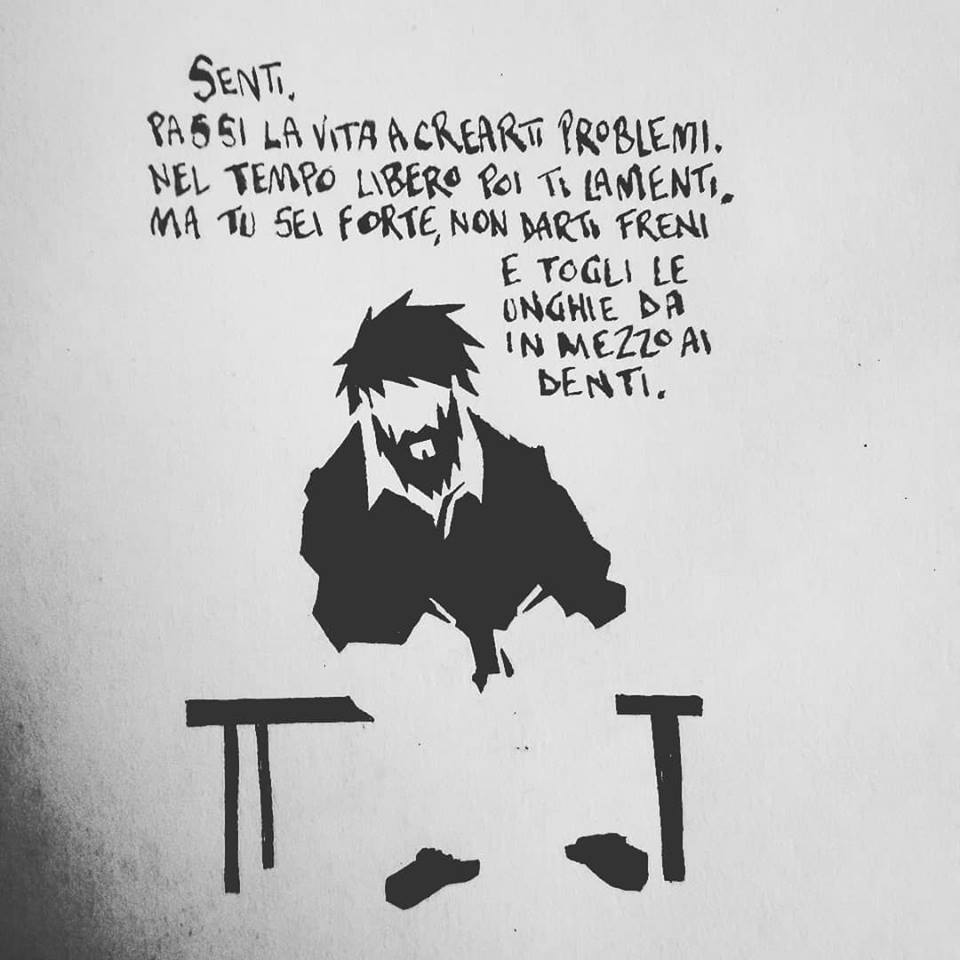 SENTI.
PASSI LA VITA A CREARTI PROBLEMI.
NEL TEMPO LIBERO POI TI LAMENTI.
MA TU SEI FORTE, NON DARTI FRENI
E TOGLI LE
UNGHIE DA
IN MEZZO AI
DENTI.